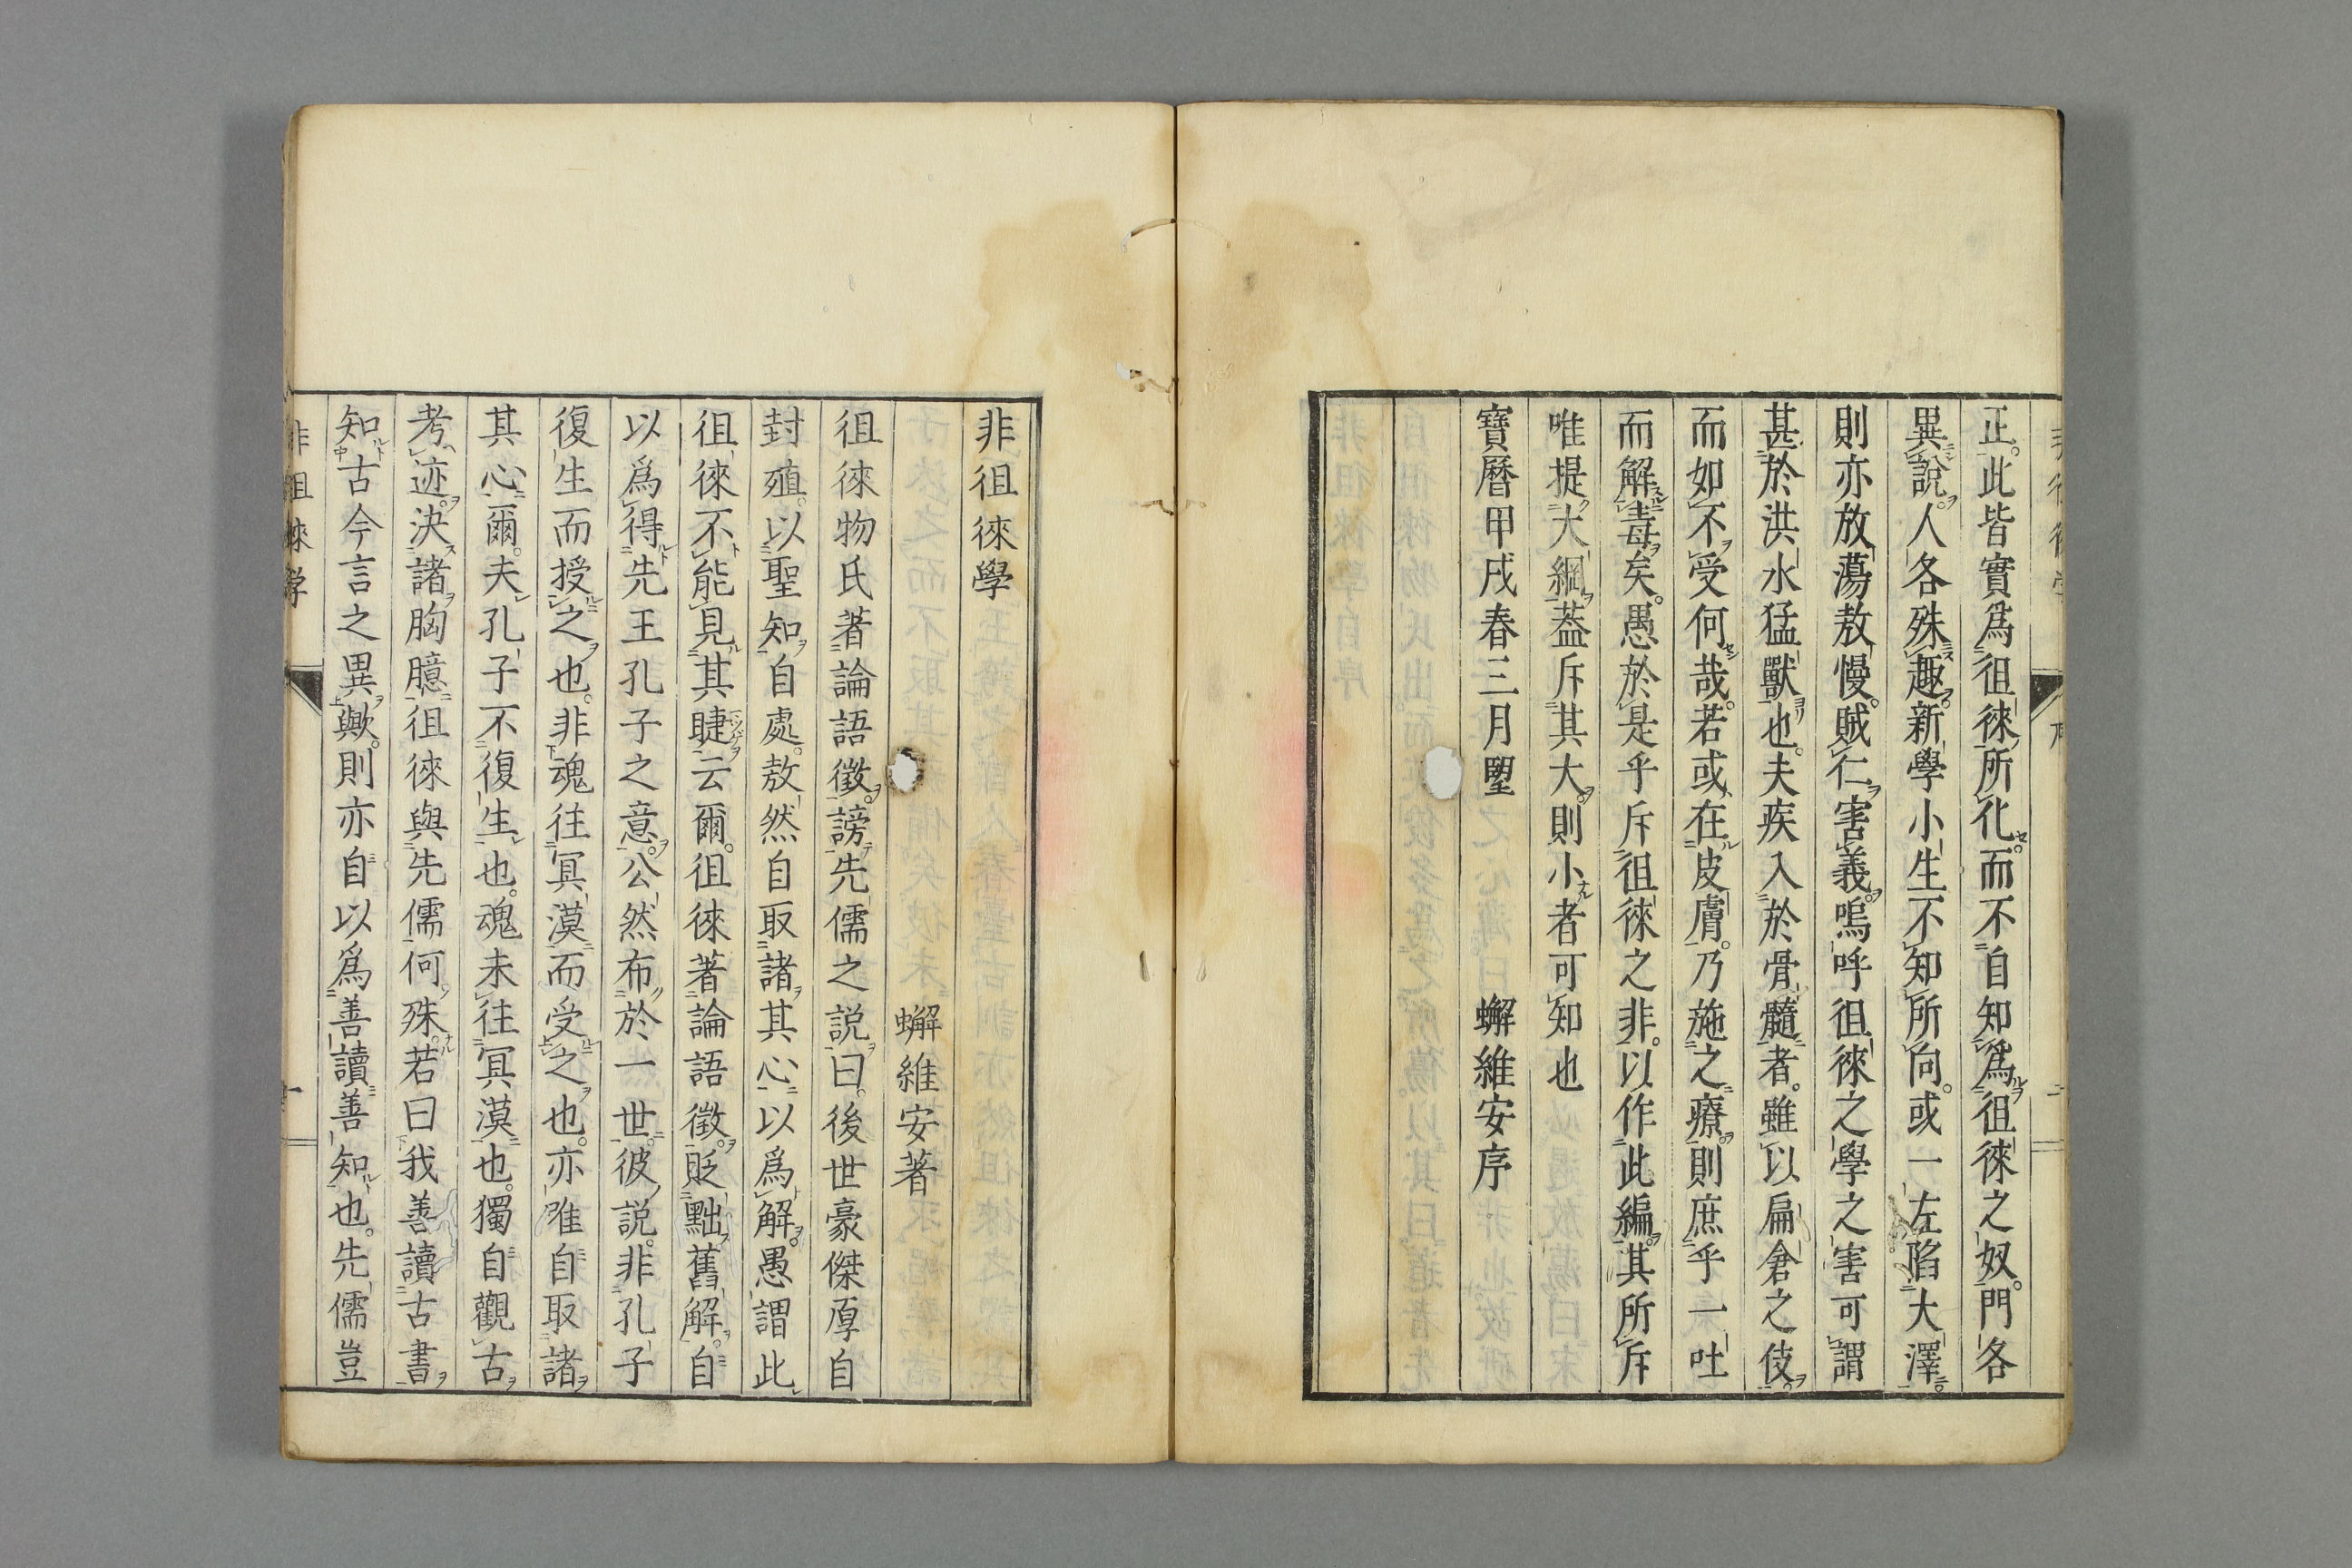 正。此皆實爲徂徠所化。而不自知爲徂徠之奴。門各
異説。人各殊趣。新學小生不知所向。或一左陷大澤。
則亦放蕩敖慢。賊仁害義。嗚呼徂徠之學之害可謂
甚於洪水猛獸也。夫疾入於骨髓者。雖以扁倉之伎。
而如不受何哉。若或在皮膚。乃施之療。則庶乎一吐
而解毒矣。愚於是乎斥徂徠之非。以作此編。其所斥
唯提大綱。蓋斥其大。則小者可知也
寶曆甲戌春三月朢　蠏維安序
非徂徠學
蠏維安著
徂徠物氏著論語徵。謗先儒之説曰。後世豪傑厚自
封殖。以聖知自處。敖然自取諸其心以爲解。愚謂此
徂徠不能見其睫云爾。徂徠著論語徵。貶黜舊解。自
以爲得先王孔子之意。公然布於一世。彼説非孔子
復生而授之也。非魂往冥漠而受之也。亦唯自取諸
其心爾。夫孔子不復生也。魂未往冥漠也。獨自觀古
考迹。決諸胸臆。徂徠與先儒何殊。若曰我善讀古書
知古今言之異歟。則亦自以爲善讀善知也。先儒豈
非徂徠学
一